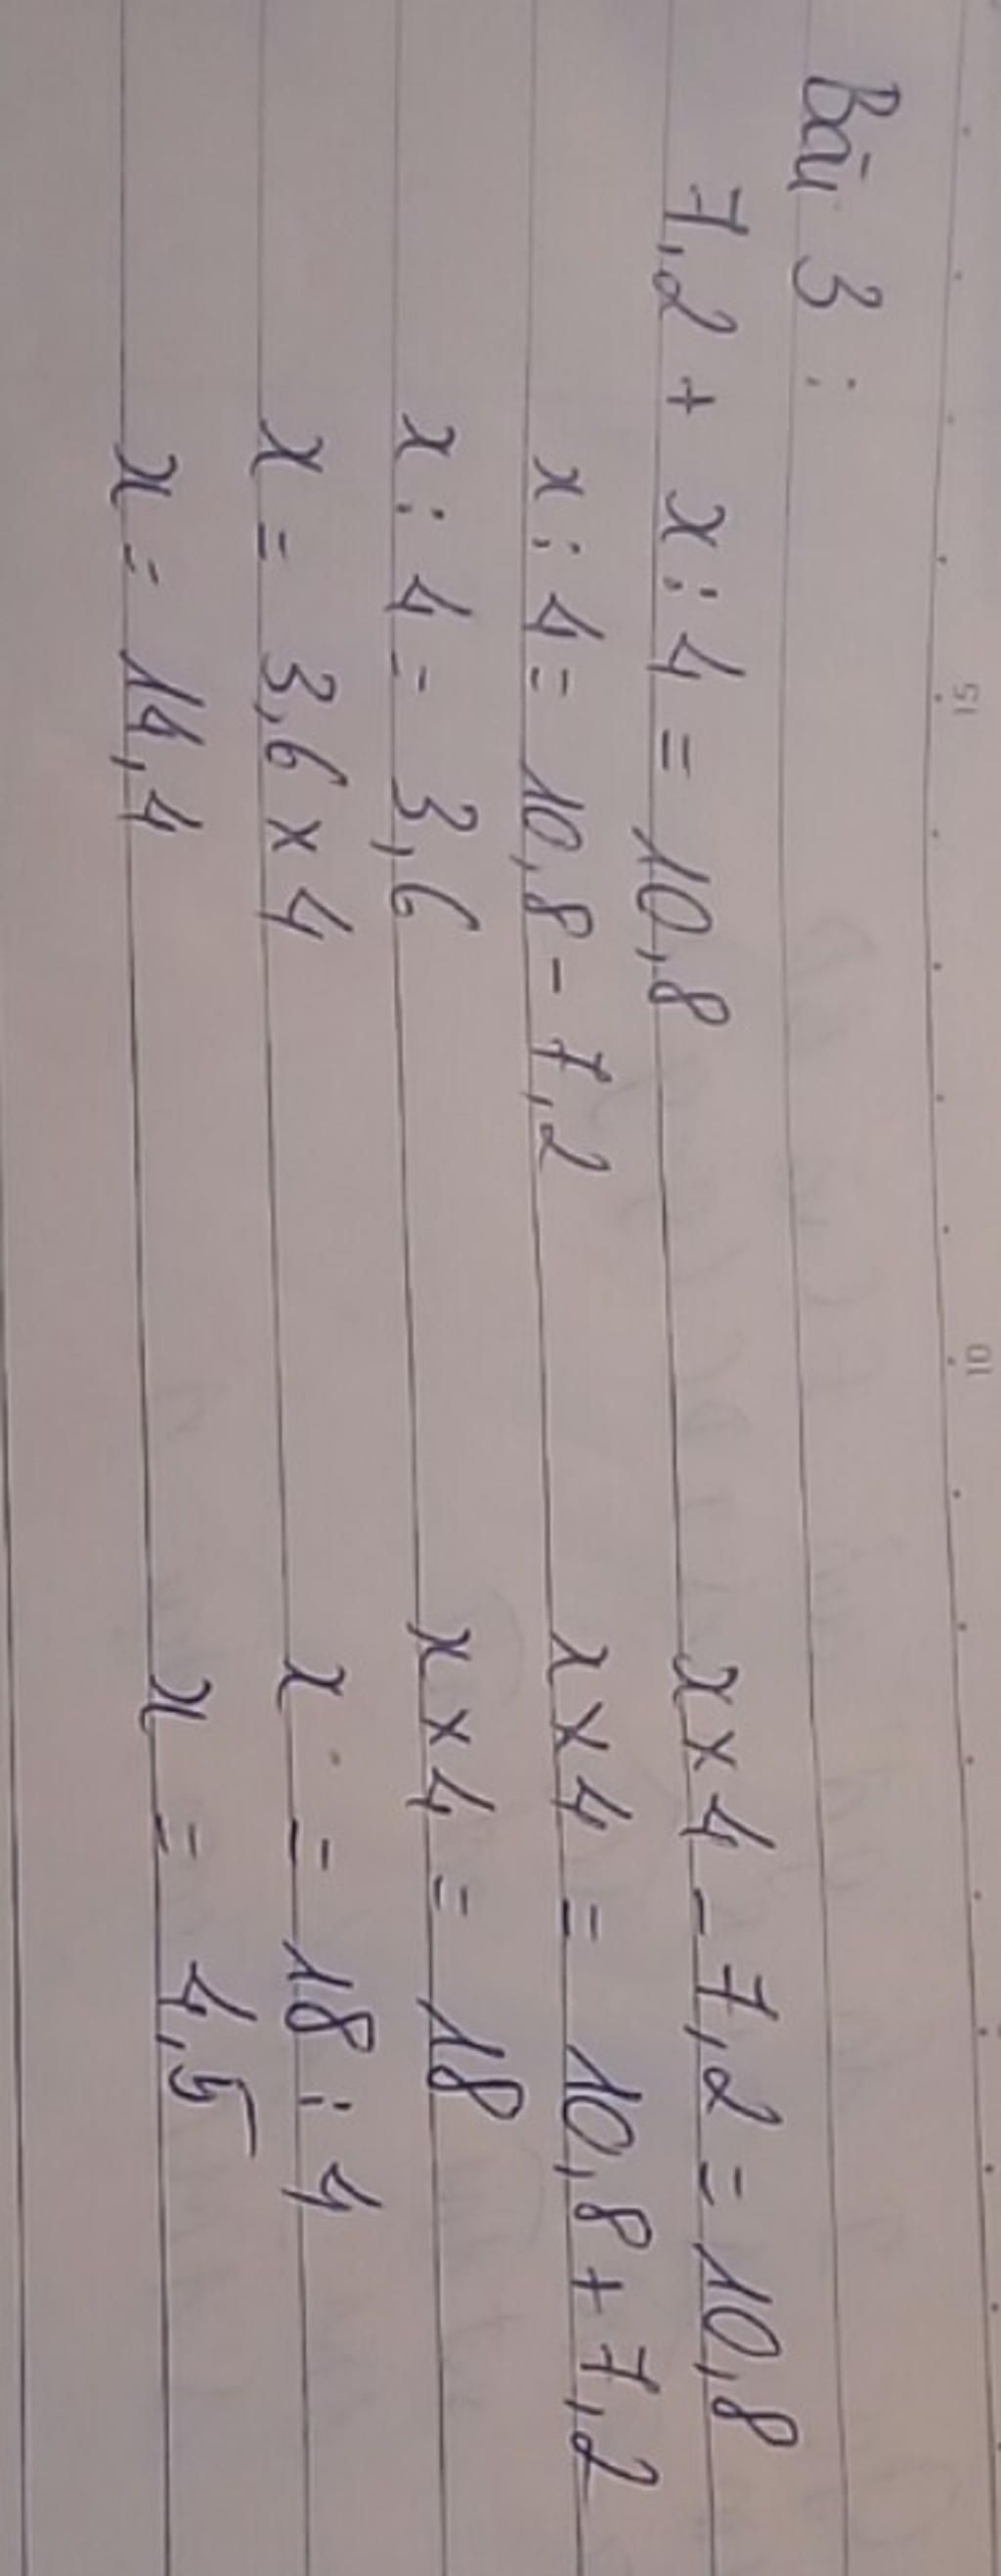 15
10
Bài 3 :
7,2 + x : 4 = 10,8
x : 4 = 10,8 - 7,2
x : 4 = 3,6
x = 3,6 x 4
x = 14,4
x x 4 - 7,2 = 10,8
x x 4 = 10,8 + 7,2
x x 4 = 18
x = 18 : 4
x = 4,5